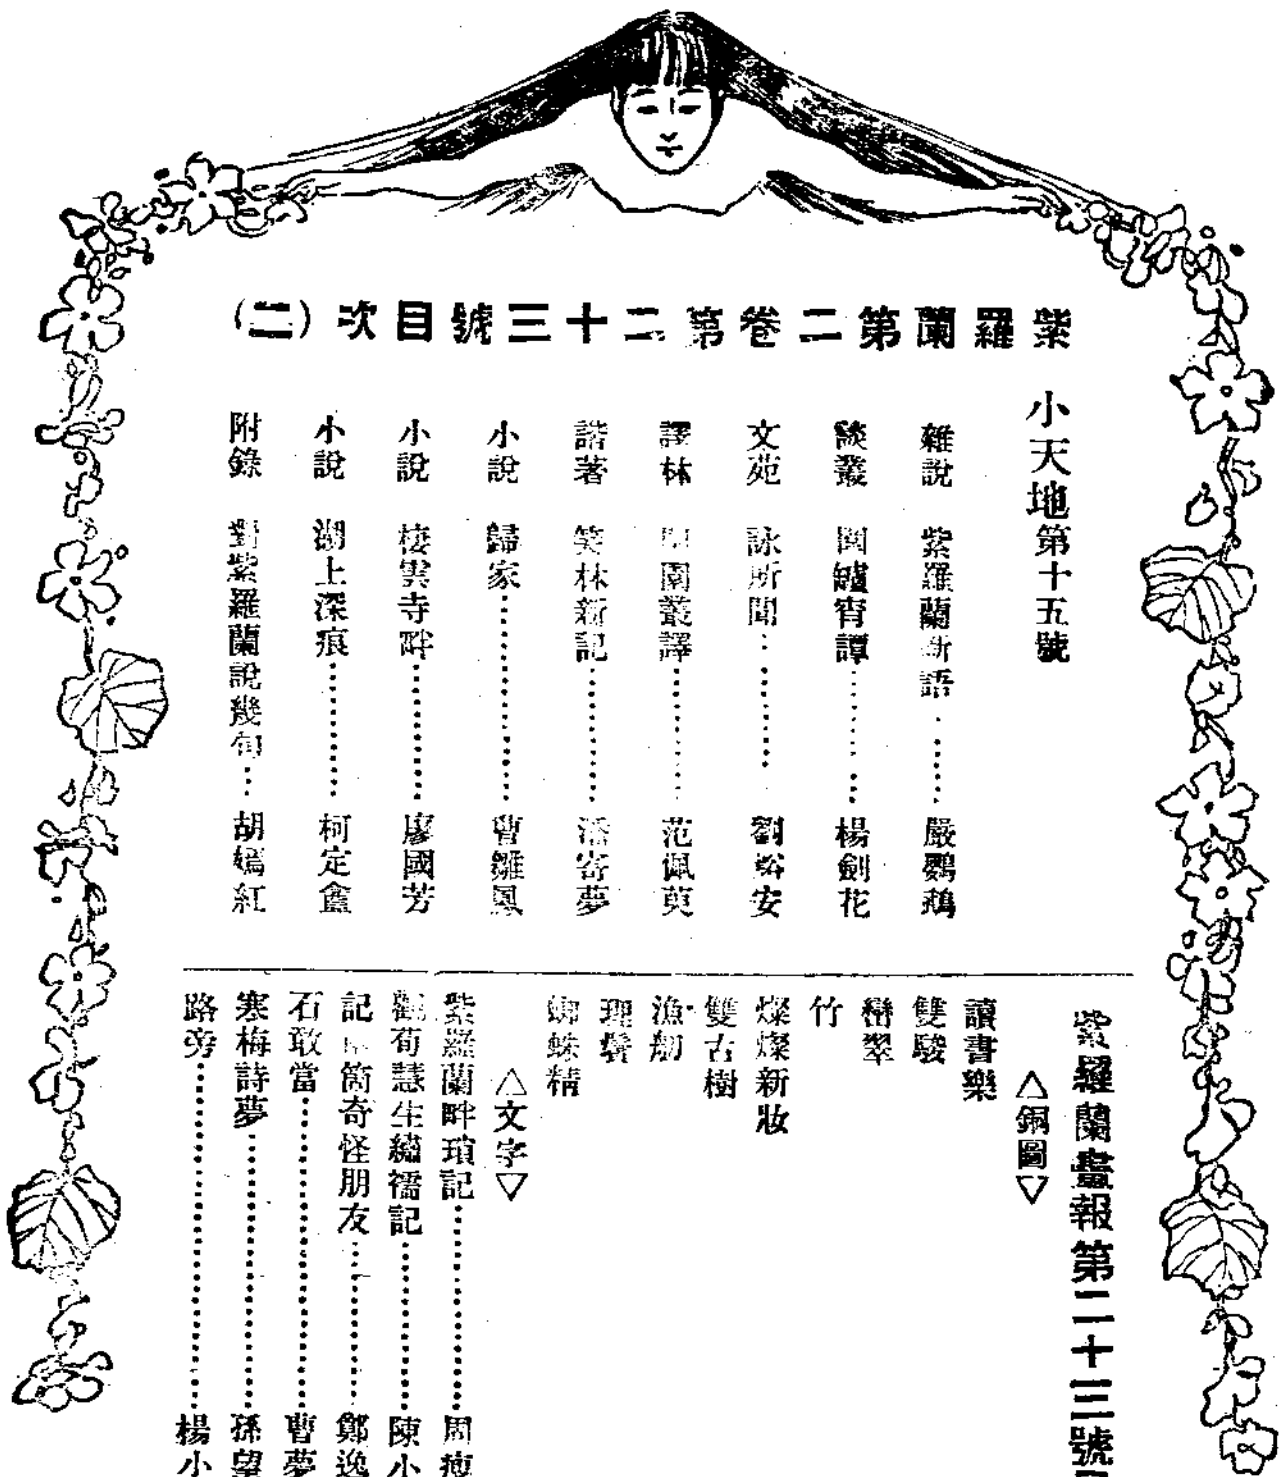 紫羅蘭第二卷第二十三號目次(二)
小天地第十五號
雜說 紫羅蘭新語……嚴鸚鵡
談叢 閩鱸宵譚……楊劍花
文苑 詠所聞……劉 安
譯林 園叢譯……范佩萸
諧著 笑林新記……潘寄夢
小說 歸家……曹雛鳳
小說 棲雲寺畔……廖國芳
小說 湖上深痕……柯定盦
附錄 對紫羅蘭說幾句…胡嫣紅
紫羅蘭畫報第二十三號
△銅圖▽
讀書樂
雙駿
巒翠
竹
燦燦新妝
雙古樹
漁舠
理鬢
蜘蛛精
△文字▽
紫羅蘭畔瑣記……周瘦
觀荀慧生繡襦記……陳小
記 箇奇怪朋友……鄭逸
石敢當……曹夢
寒梅詩夢……孫望
路旁……楊小